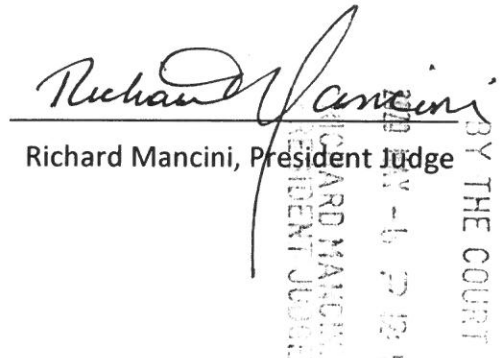 Richard Mancini
Richard Mancini, President Judge
BY THE COURT
RICHARD MANCINI
PRESIDENT JUDGE